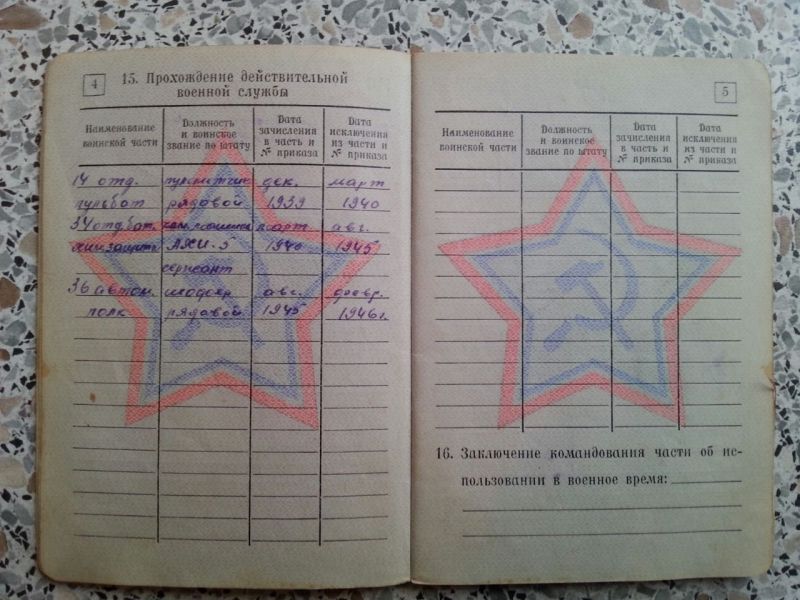 4
15. Прохождение действительной
военной службы
Наименование воинской части
Должность и воинское звание по штату
Дата зачисления в часть и № приказа
Дата исключения из части и № приказа
14 отд. дек. март
рядовой 1939 1940
34 отд. бат. март авг.
химзащиты 1940 1945
сержант
36 автом. шофер авг. февр.
полк рядовой 1945 1946 г.
5
Наименование воинской части
Должность и воинское звание по штату
Дата зачисления в часть и № приказа
Дата исключения из части и № приказа
16. Заключение командования части об ис-
пользовании в военное время: